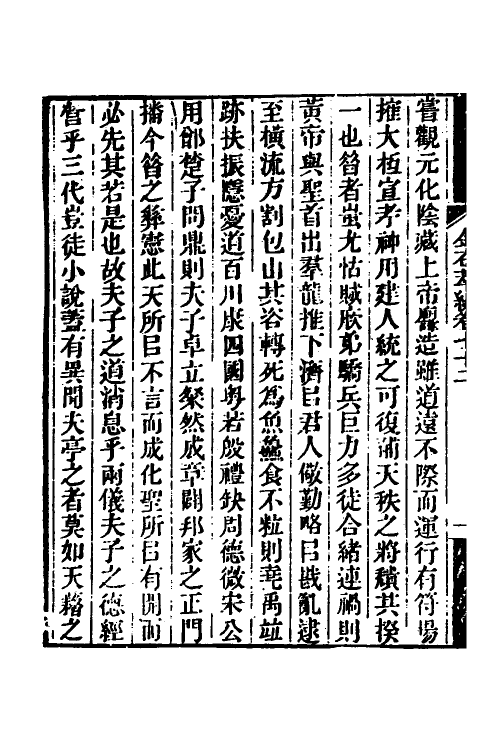 嘗觀元化陰藏上帝造雖道遠不際而運行有符場
搉大柢宜考神用建人統之可復補天秩之將穨其揆
一也昝者蚩尤怙賊厥弟驕兵巨力多徒合緒連禍則
黃帝與聖首出羣龍推下濟㠯君人儆勤略㠯戡亂逮
至橫流方割包山其咨轉死爲魚鱻食不粒則堯禹竝
跡扶振隱憂道百川康四國粵若殷禮缺周德微宋公
用鄫楚子問鼎則夫子卓立粲然成章闢邦家之正門
播今昝之彝憲此天所㠯不言而成化聖所㠯有開而
必先其若是也故夫子之道消息乎兩儀夫子之德經
營乎三代豈徒小說葢有異聞夫亭之者莫如天籍之
金石萃編卷七十二
一